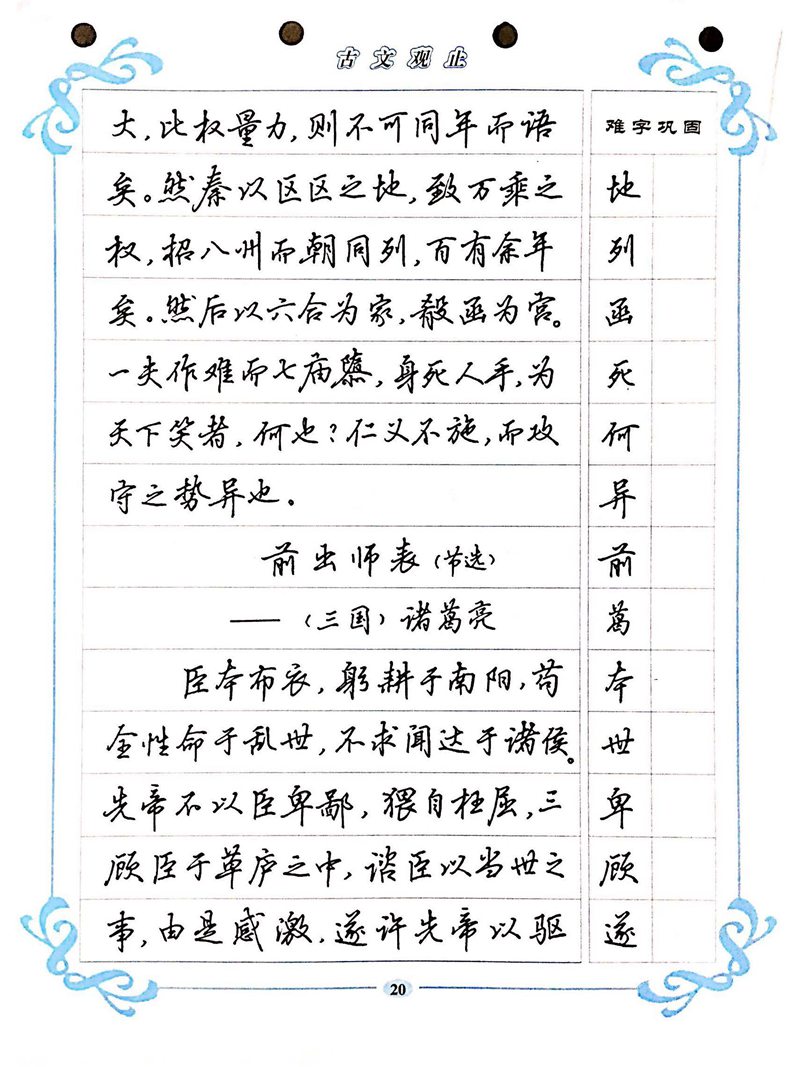 古文观止
大，比权量力，则不可同年而语
矣。然秦以区区之地，致万乘之
权，招八州而朝同列，百有余年
矣。然后以六合为家，殽函为宫。
一夫作难而七庙隳，身死人手，为
天下笑者，何也？仁义不施，而攻
守之势异也。
前出师表（节选）
——（三国）诸葛亮
臣本布衣，躬耕于南阳，苟
全性命于乱世，不求闻达于诸侯。
先帝不以臣卑鄙，猥自枉屈，三
顾臣于草庐之中，谘臣以当世之
事，由是感激，遂许先帝以驱
难字巩固
地
列
函
死
何
异
前
葛
本
世
卑
顾
遂
20